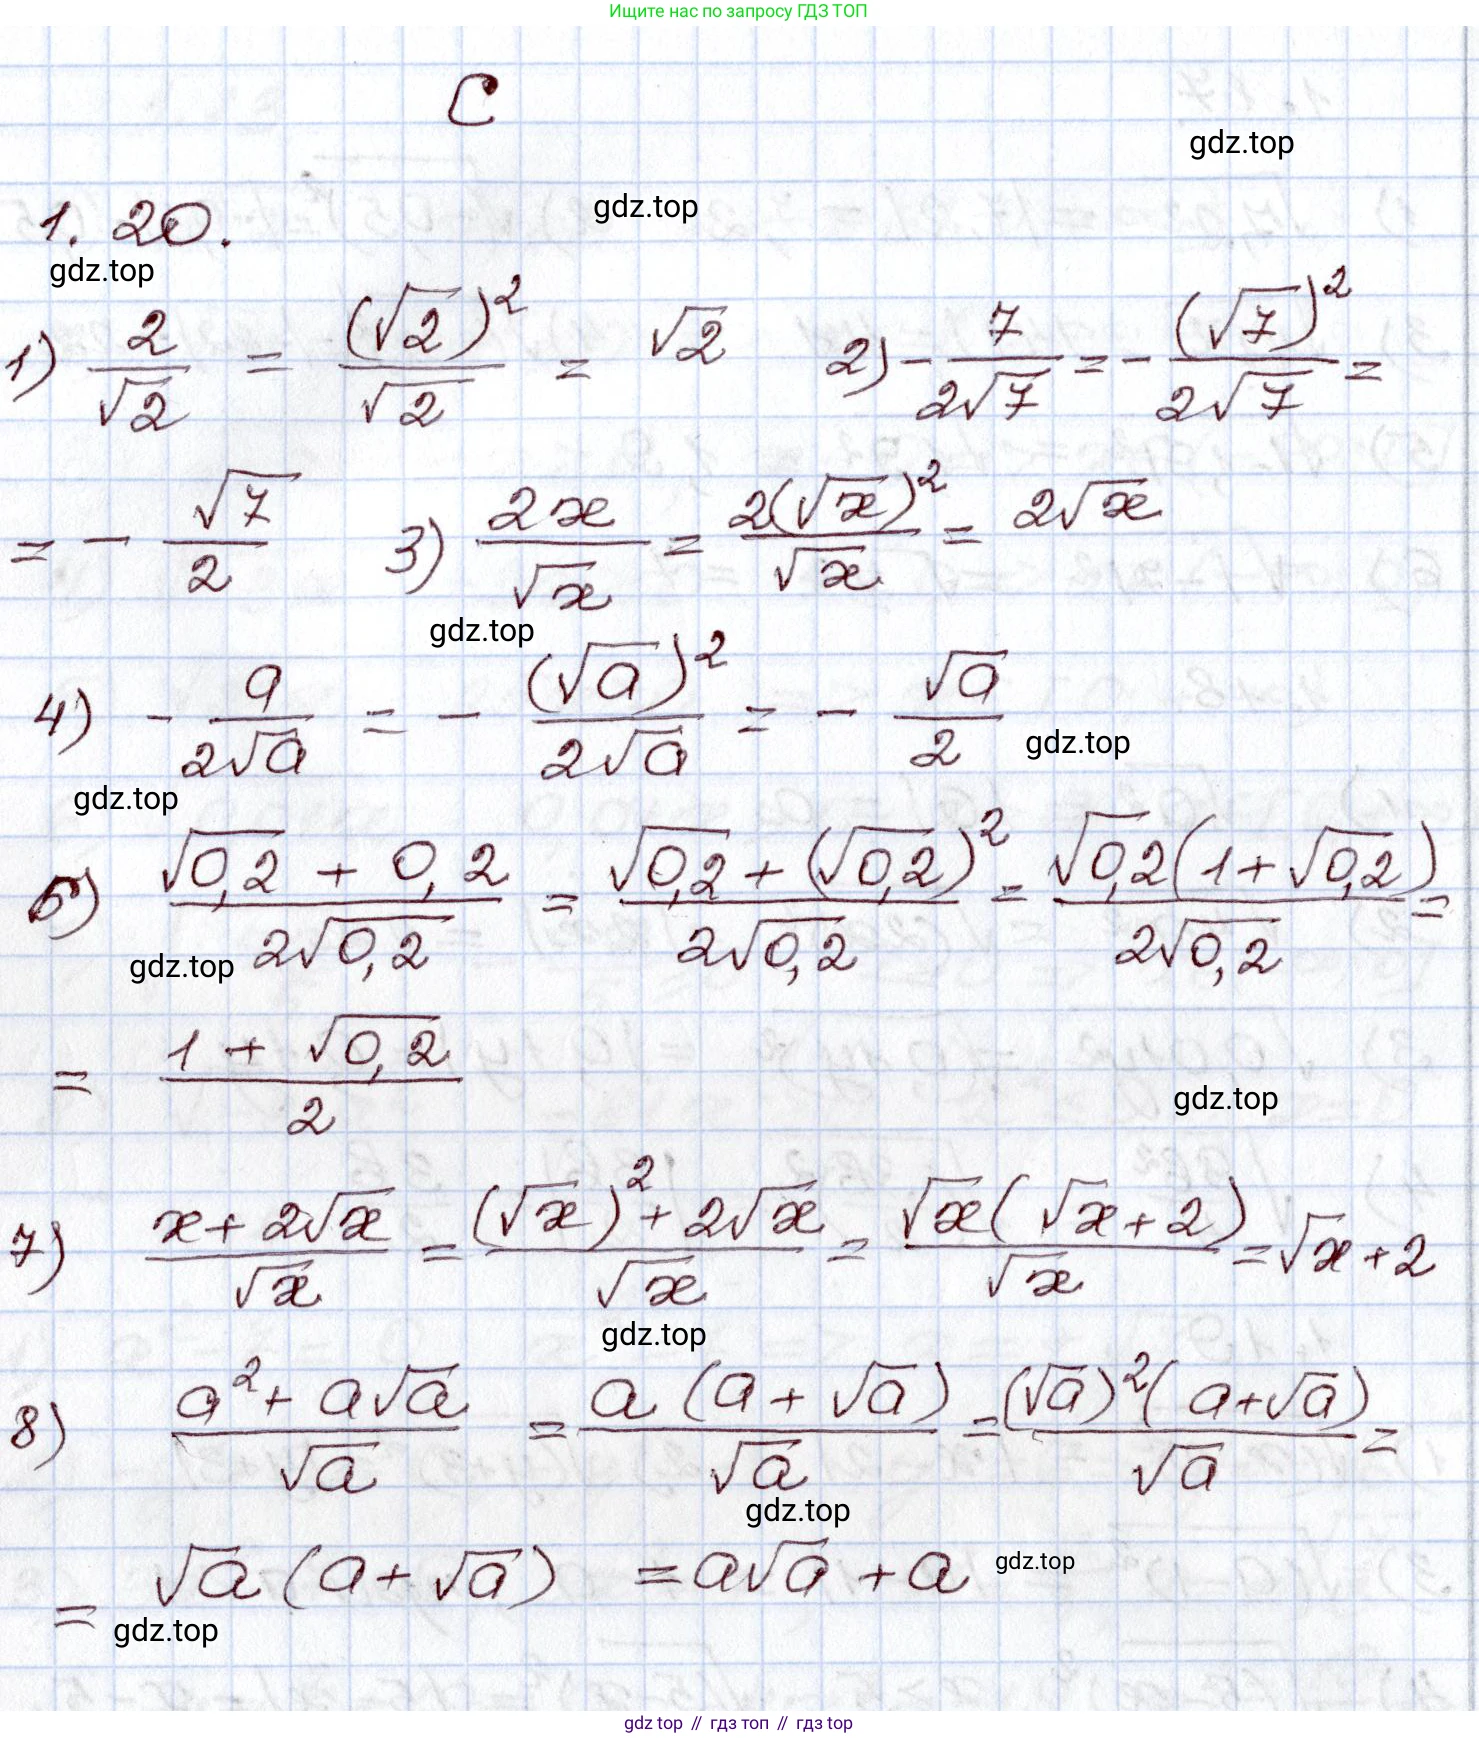 Ищите нас по запросу ГДЗ ТОП
С
gdz.top
gdz.top
1.20.
gdz.top
1) 2/√2 = (√2)²/√2 = √2 2) - 7/2√7 = - (√7)²/2√7 =
= - √7/2 3) 2x/√x = 2(√x)²/√x = 2√x
gdz.top
4) - a/2√a = - (√a)²/2√a = - √a/2
gdz.top
gdz.top
6) √0,2 + 0,2/2√0,2 = √0,2 + (√0,2)²/2√0,2 = √0,2(1 + √0,2)/2√0,2 =
gdz.top
= 1 + √0,2/2
gdz.top
7) x + 2√x/√x = (√x)² + 2√x/√x = √x(√x + 2)/√x = √x + 2
gdz.top
8) a² + a√a/√a = a(a + √a)/√a = (√a)²(a + √a)/√a =
gdz.top
= √a(a + √a) = a√a + a
gdz.top
gdz.top
gdz top // гдз топ // гдз top